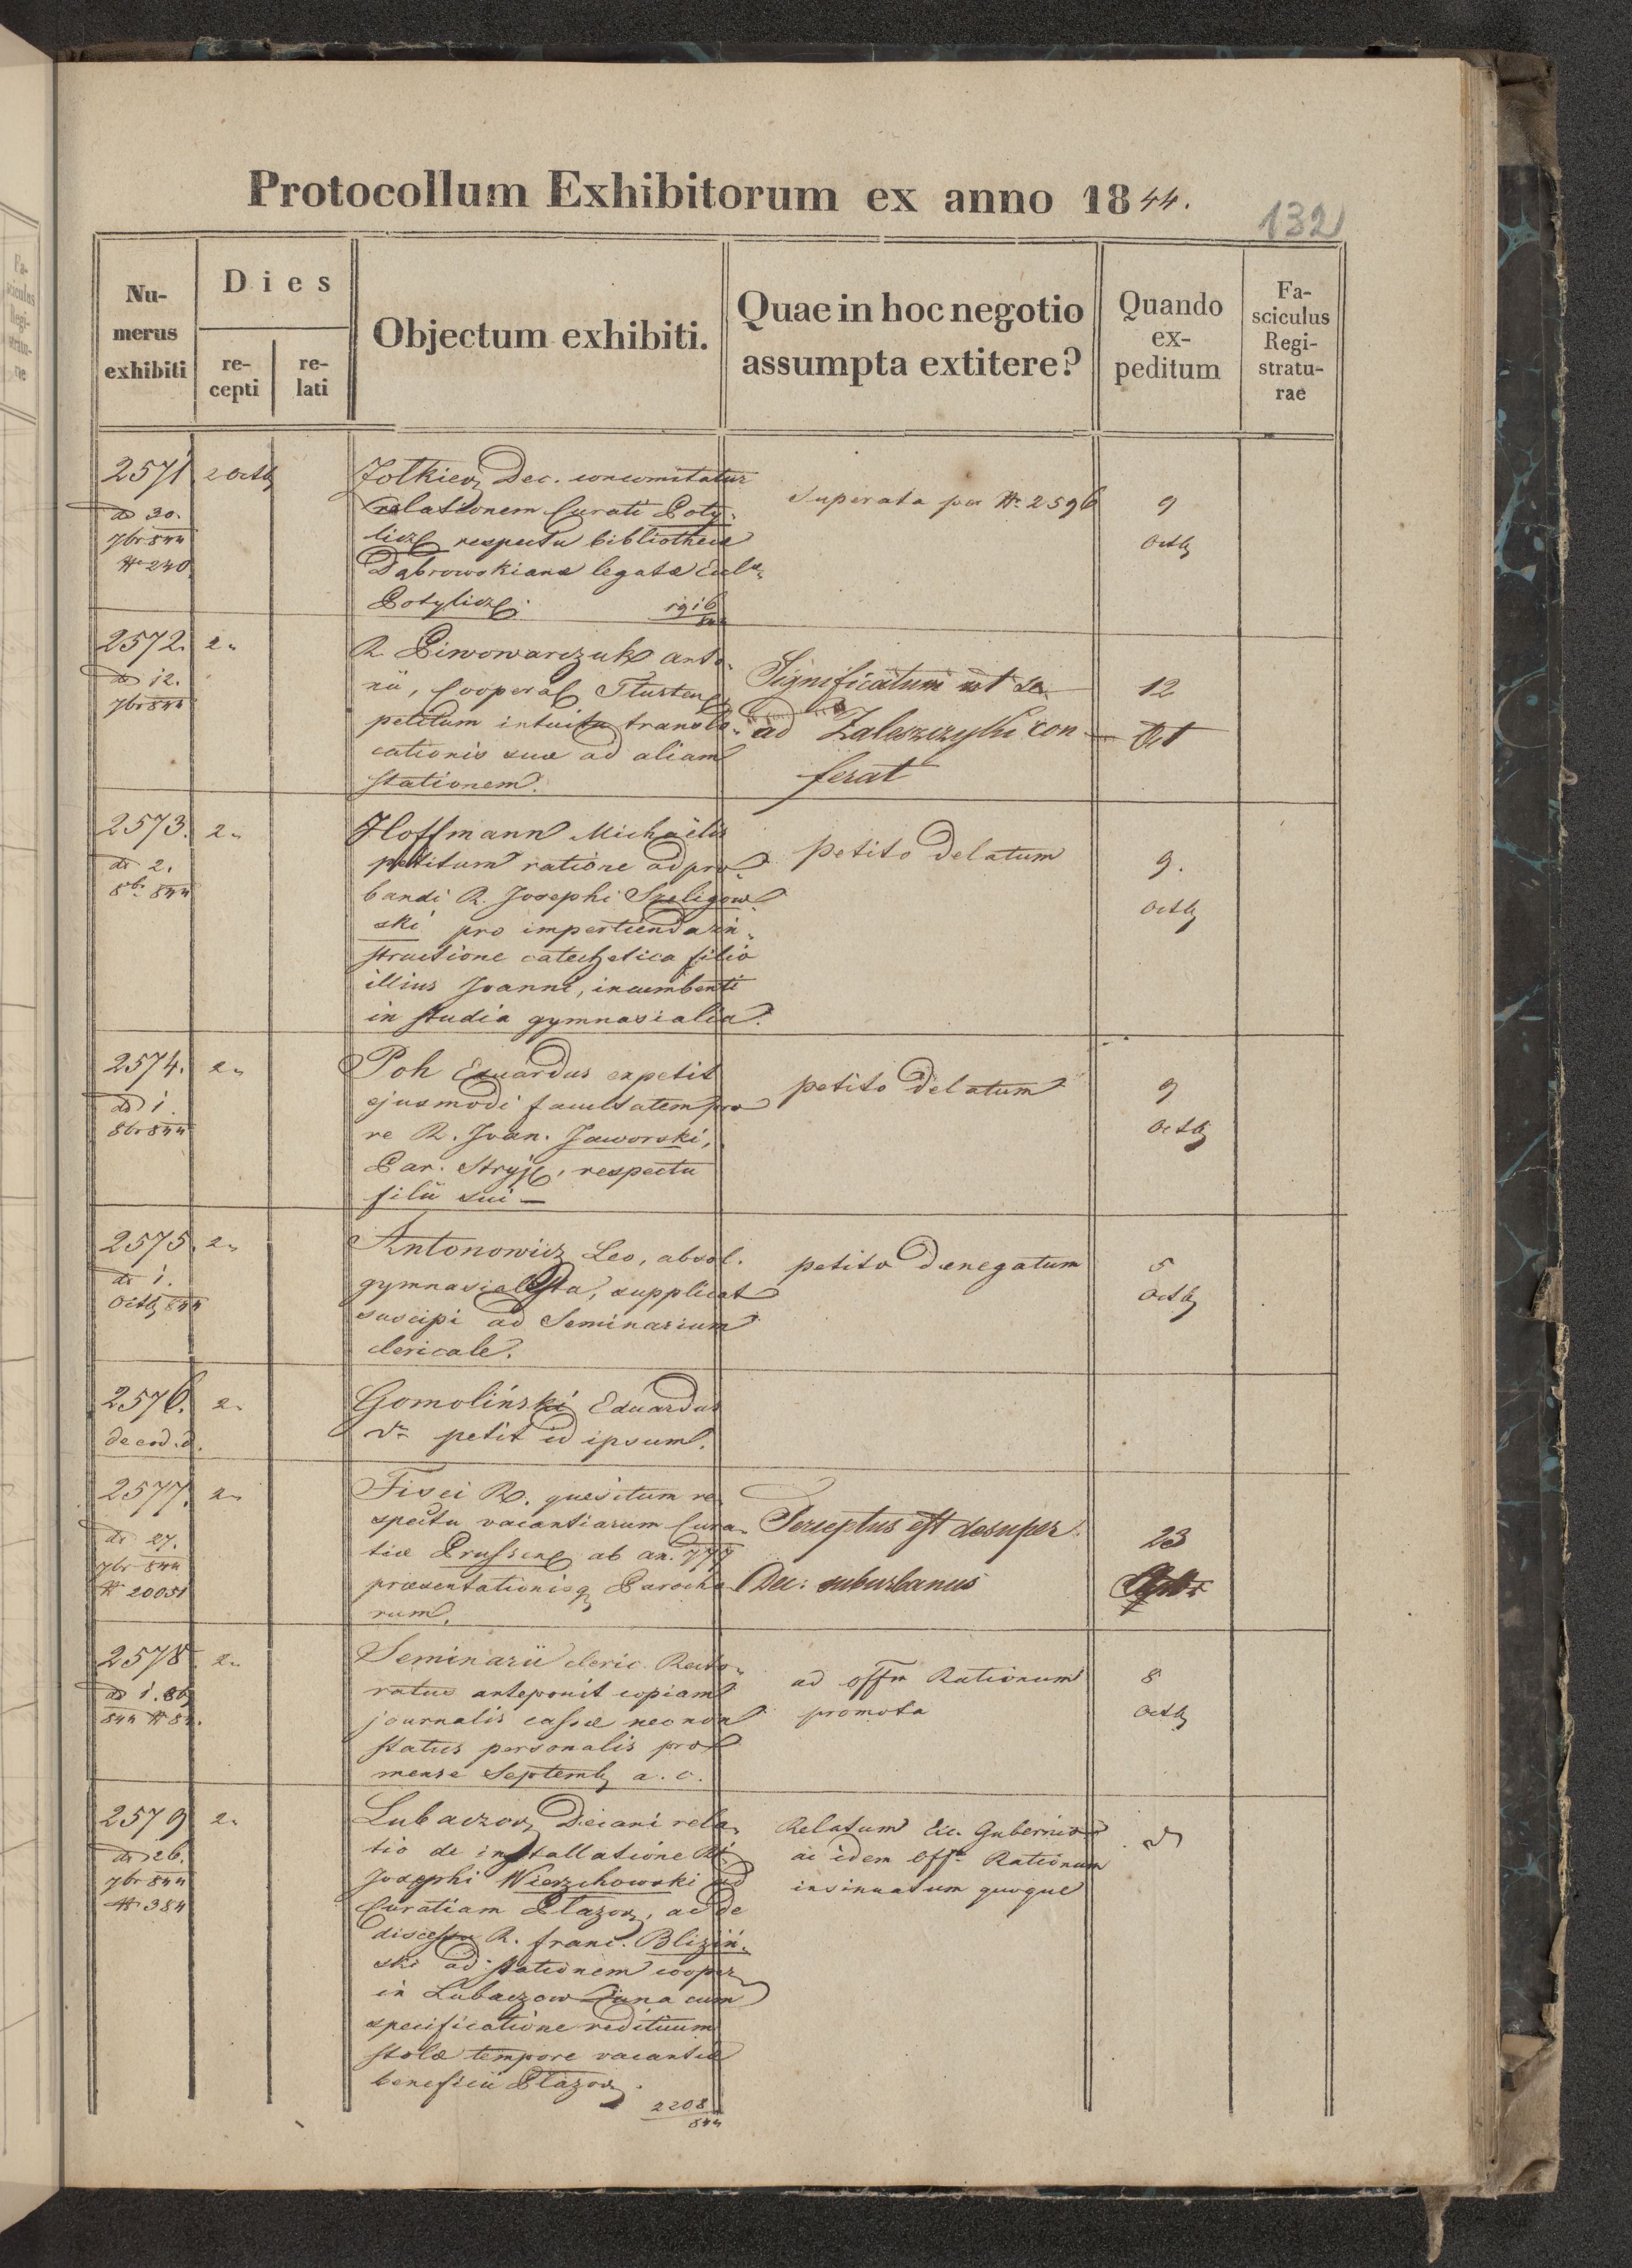 Protocollum Exhibitorum ex anno 1844.
132
Nu-
merus
exhibiti
Dies
re-
cepti
re-
lati
Objectum exhibiti.
Quae in hoc negotio
assumpta extitere?
Quando
ex-
peditum
Fa-
sciculus
Regi-
stratu-
rae
2571 2 Octb
dd 30.
7br 844
N 240
Żołkiew Dec. concomitatur
relationem Curati Poty-
licz respectu bibliothecæ
Dąbrowskianæ legatæ Eccl
Potylicz.
1916
844
Superata per N. 2596
9
Octb
2572. 2
dd 12.
7br 844
R. Piwowarczuk Anto-
nii, Cooperat Tłusten
petitum intuitu translo-
cationis suæ ad aliam
stationem.
Significatum ut se
ad Zaleszczyki con
ferat
12
Oct
2573. 2
dd 2.
8br 844
Hoffmann Michaëlis
petitum ratione adpro
bandi R. Josephi Szeligow
ski pro impertienda in-
structione catechetica filio
illius Joanni, incumbenti
in studia gymnasialia.
petito delatum
9.
Octb
2574. 2
dd 1.
8br 844
Poh Eduardus expetit
ejusmodi facultatem pro
re R. Joan. Jaworski,
Par. Stryj, respectu
filii sui —
petito delatum
9
Octb
2575. 2
dd 1.
Octb 844
Antonowicz Leo, absol.
gymnasialista, supplicat
suscipi ad Seminarium
clericale.
petito denegatum
5
Octb
2576. 2
de eod. d.
Gomoliński Eduardus
petit id ipsum.
2577. 2
dd 27.
7br 844
N 20051
Fisci R. quesitum re
spectu vacantiarum Cura
tiæ Prussen ab an. 777
præsentationisq Parocho
rum.
Perceptus est desuper
Dec: suburbanus
23
2578. 2
dd 1. 8b
844 N 82.
Seminarii cleric. Recto-
ratus anteponit copiam
journalis cassæ necnon
status personalis pro
mense Septemb a. c.
ad offm Rationum
promota
8
Octb
2579 2
dd 26.
7br 844
N 384
Lubaczow Decani rela
tio de installatione R
Josephi Wierzchowski ad
Curatiam Płazow, ac de
discessu R. Franc. Bliziń-
ski ad stationem cooper
in Lubaczow una cum
specificatione redituum
stolæ tempore vacantiæ
beneficii Płazow.
2208
844
Relatum Exc. Gubernio
ac idem Offm Rationum
insinuatum quoque